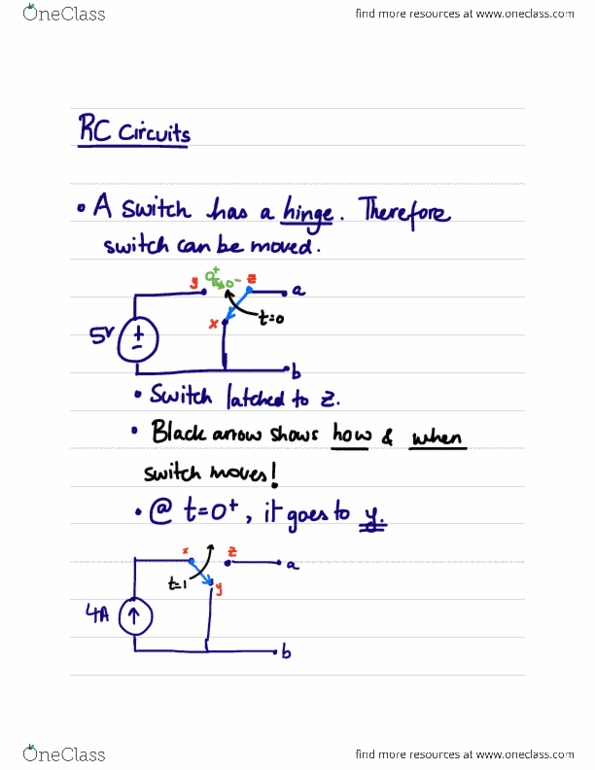 OneClass
find more resources at www.oneclass.com
RC Circuits
• A switch has a hinge. Therefore
switch can be moved.
y 0+ 0- z a
x t=0
5V + -
b
• Switch latched to z.
• Black arrow shows how & when
switch moves!
• @ t=0+, it goes to y.
x z a
t=1 y
4A
b
OneClass
find more resources at www.oneclass.com